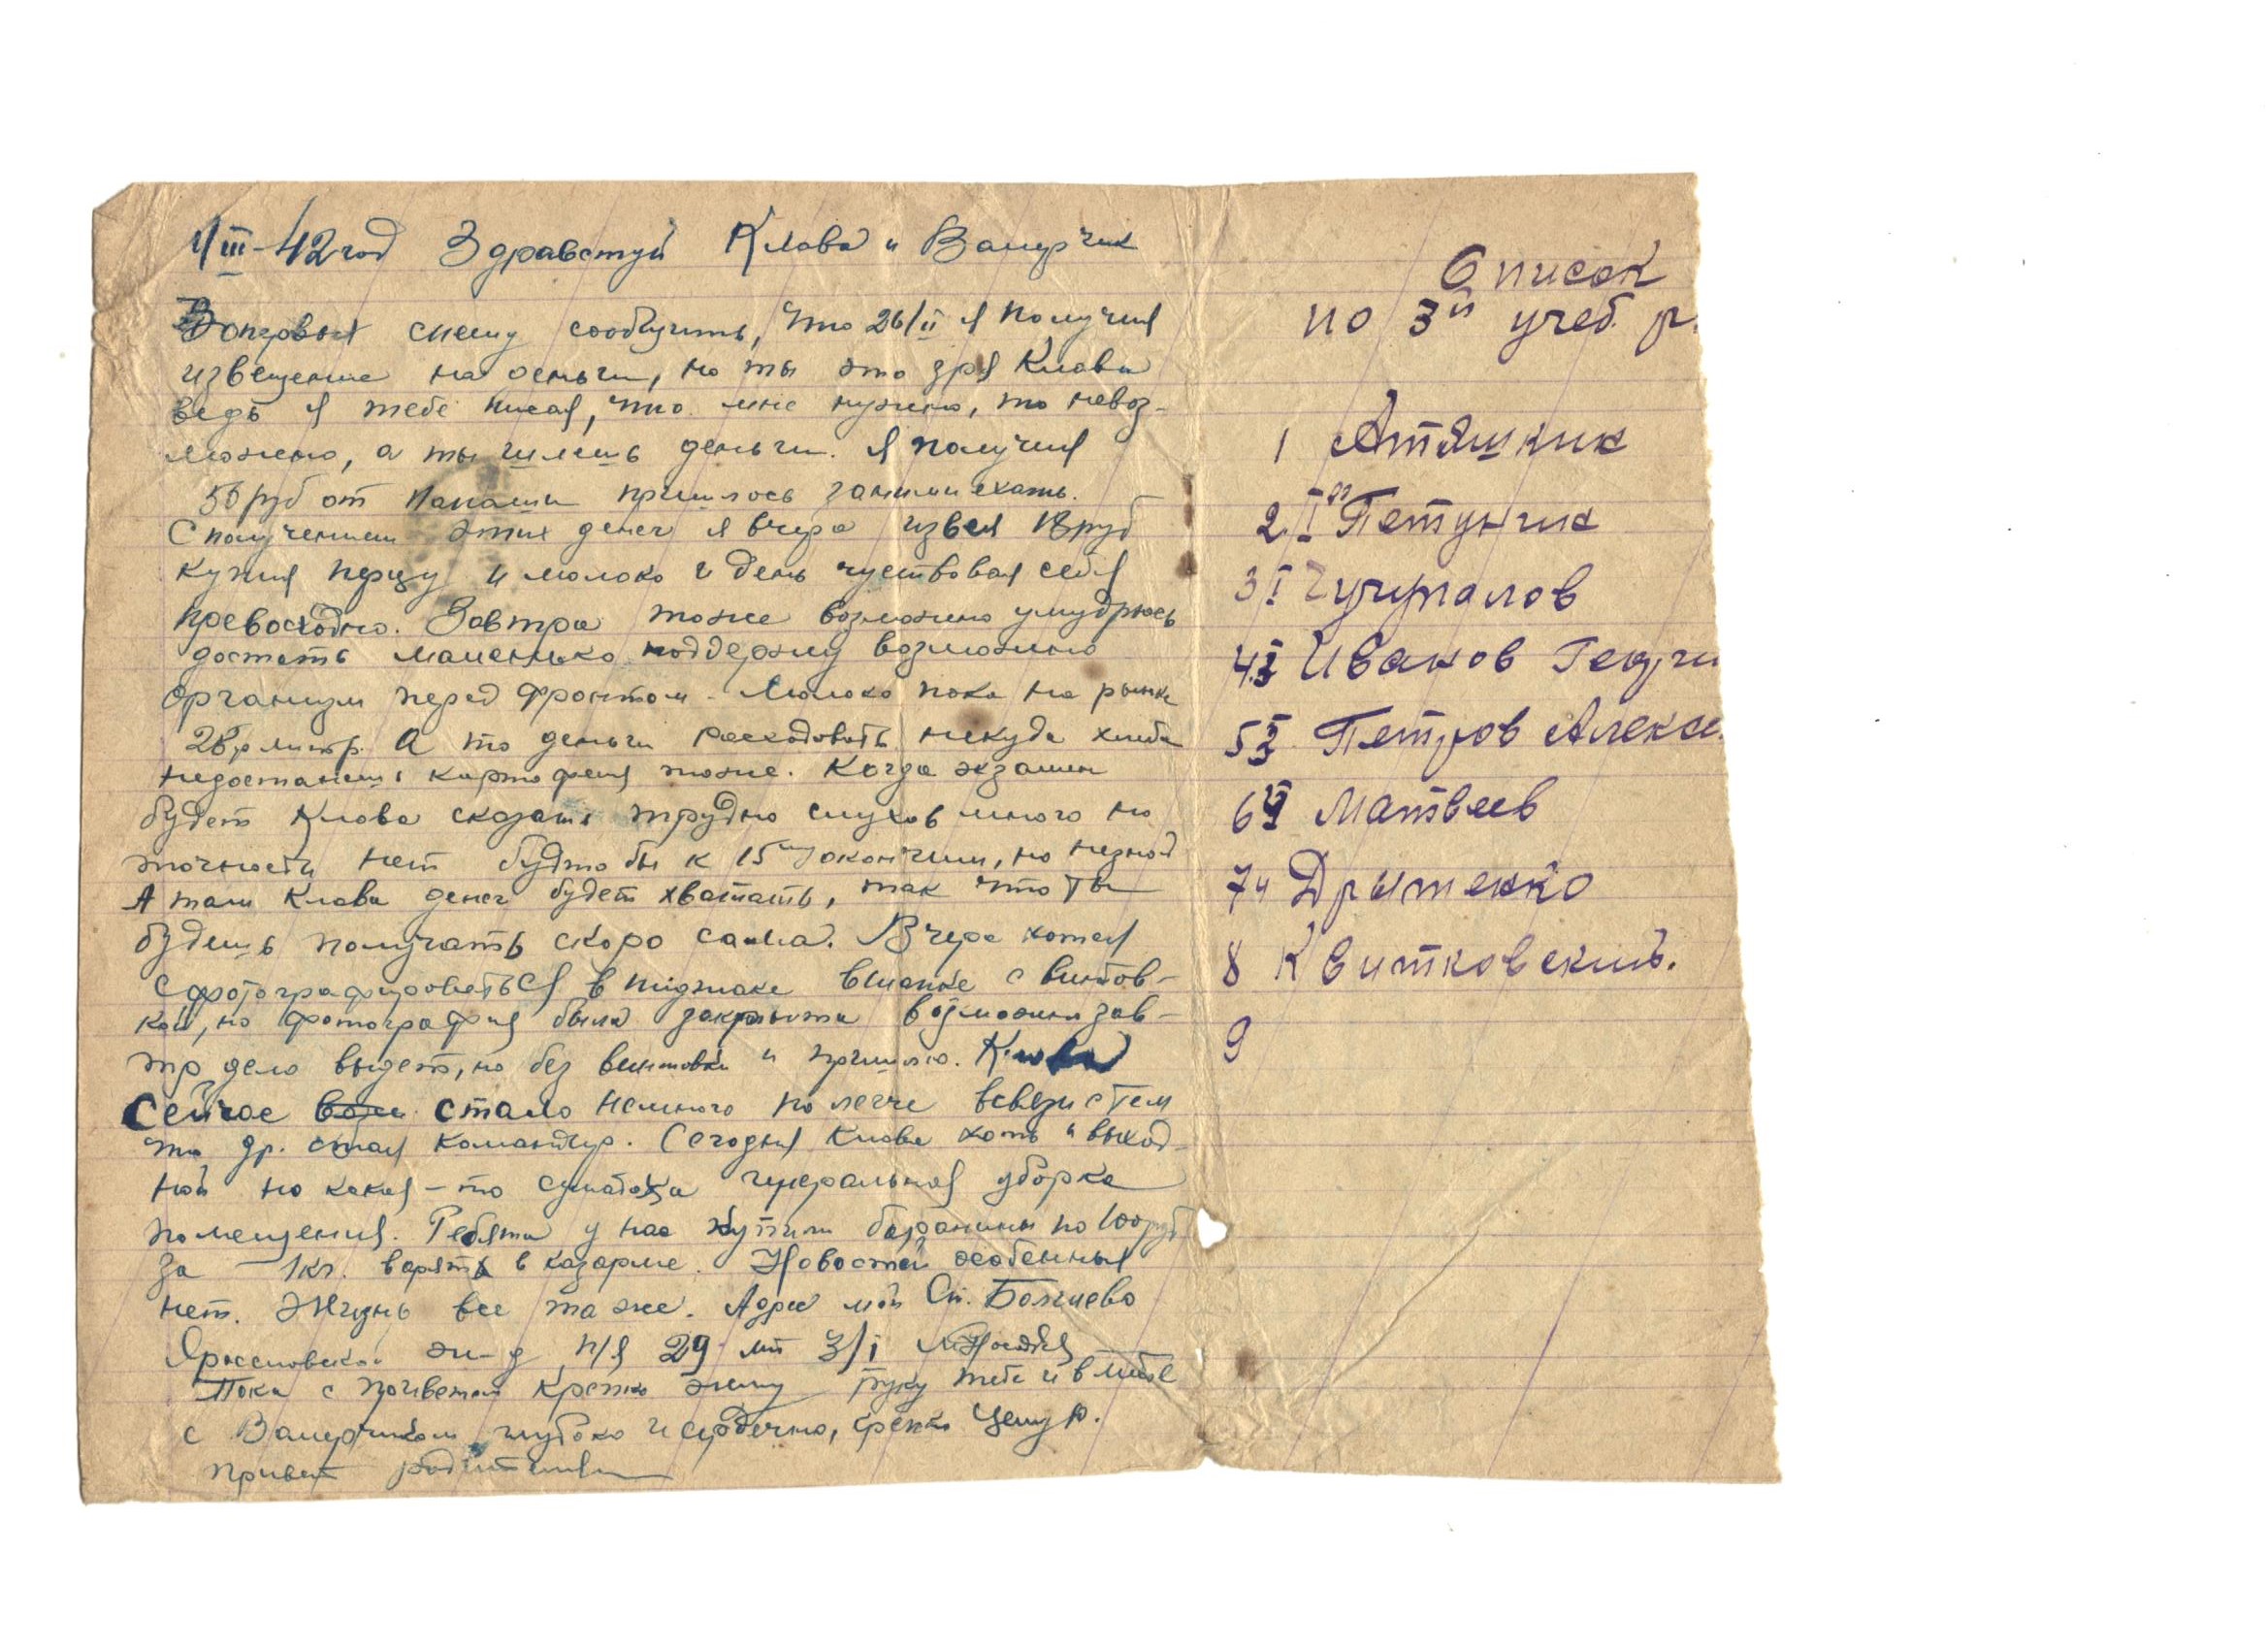 1/III-42 год Здравствуй Клава и Валерчик
Вопервых спешу сообщить, что 26/II я получил
извещение на деньги, но ты это зря Клава
ведь я тебе писал, что мне нужно, то невоз-
можно, а ты шлешь деньги. Я получил
50 руб от папаши пришлось заними ехать.
С получением этих денег я вчера извел 18 руб
купил перцу и молоко и день чуствовал себя
превосходно. Завтра тоже возможно умудрюсь
достать маленько поддержу возможно
организм перед фронтом. Молоко пока на рынке
28 р литр. А то деньги расходовать некуда хлеба
недостанешь картофеля тоже. Когда экзамен
будет Клава сказать трудно слухов много но
точности нет будто бы к 15му окончим, но незнаю
А там Клава денег будет хватать, так что ты
будешь получать скоро сама. Вчера хотел
сфотографироваться в пиджаке вшапке с винтов-
кой, но фотография была закрыта возможно зав-
тра дело выдет, но без винтовки и пришлю. Клава
Сейчас стало немного по легче всвязи с тем
что др. стал командир. Сегодня Клава хоть и выход-
ной но какая-то суматоха генеральная уборка
помещения. Ребята у нас купили баранины по 100 руб
за 1 кг. варят в казарме. Новостей особенных
нет. Жизнь все та же. Адрес мой Ст. Болшево
Ярославской ж-д п/я 29 мп 3/1
Пока с приветом крепко жму руку тебе и вместе
с Валерчиком глубоко и сердечно, крепко Целую.
Привет родителям
Список
по 3й учеб. р.
1 Атяшкин
2 I Петунчик
3 I Чучупалов
4 I Иванов Георги
5 I Петров Алекс
6 Матвеев
7 ч Дрытенко
8 Квитковский.
9